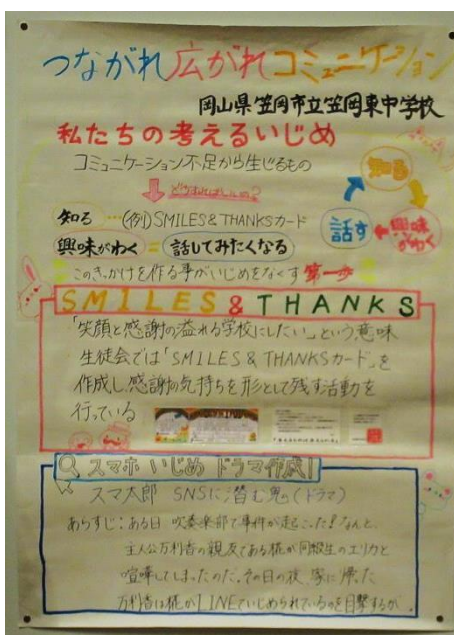 つながれ広がれコミュニケーション
岡山県笠岡市立笠岡東中学校
私たちの考えるいじめ
コミュニケーション不足から生じるもの
どうすればいいの?
知る …(例)SMILES&THANKSカード
興味がわく = 話してみたくなる
知る
興味がわく
話す
このきっかけを作る事がいじめをなくす第一歩
SMILES&THANKS
「笑顔と感謝の溢れる学校にしたい」という意味
生徒会では「SMILES&THANKSカード」を
作成し感謝の気持ちを形として残す活動を
行っている
スマホ いじめ ドラマ作成!
スマ太郎 SNSに潜む鬼(ドラマ)
あらすじ:ある日 吹奏楽部で事件が起こった!なんと、
主人公万利香の親友である椛が同級生のエリカと
喧嘩してしまったのだ。その日の夜、家に帰った
万利香は椛がLINEでいじめられているのを目撃するが…